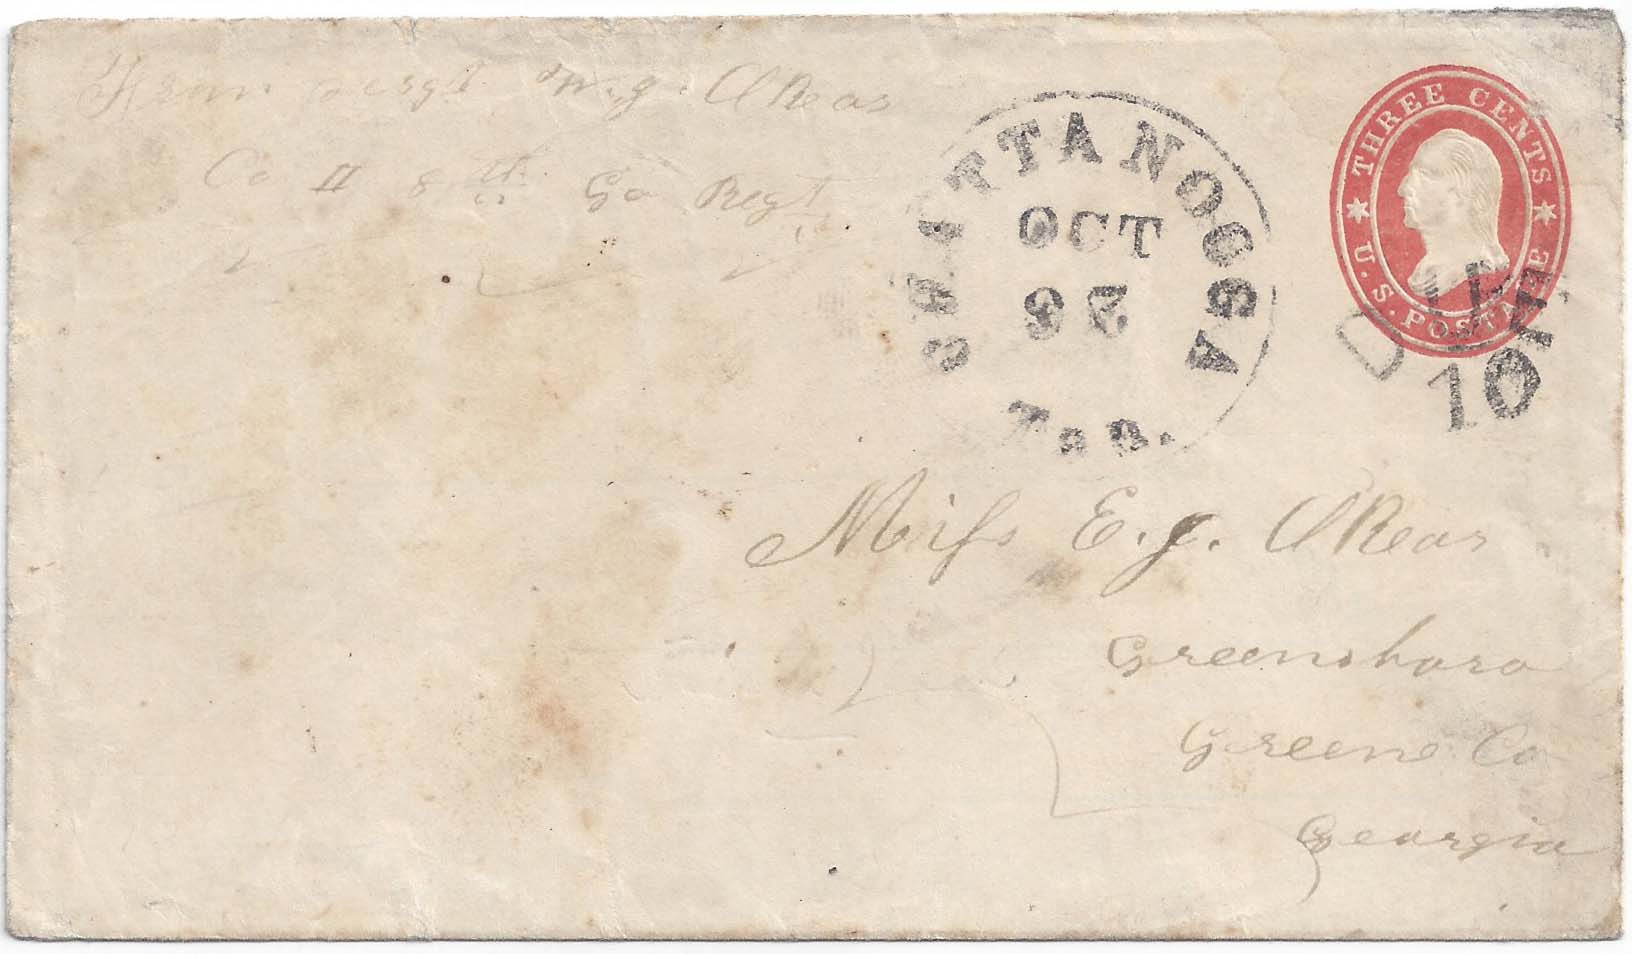 From Sergt W. J. OReas
Co H 8th Ga Regt
CHATTANOOGA
OCT
32
Ten.
THREE CENTS
U.S. POSTAGE
DUE
10
Miſs E. J. OReas
Greensboro
Greene Co
Georgia